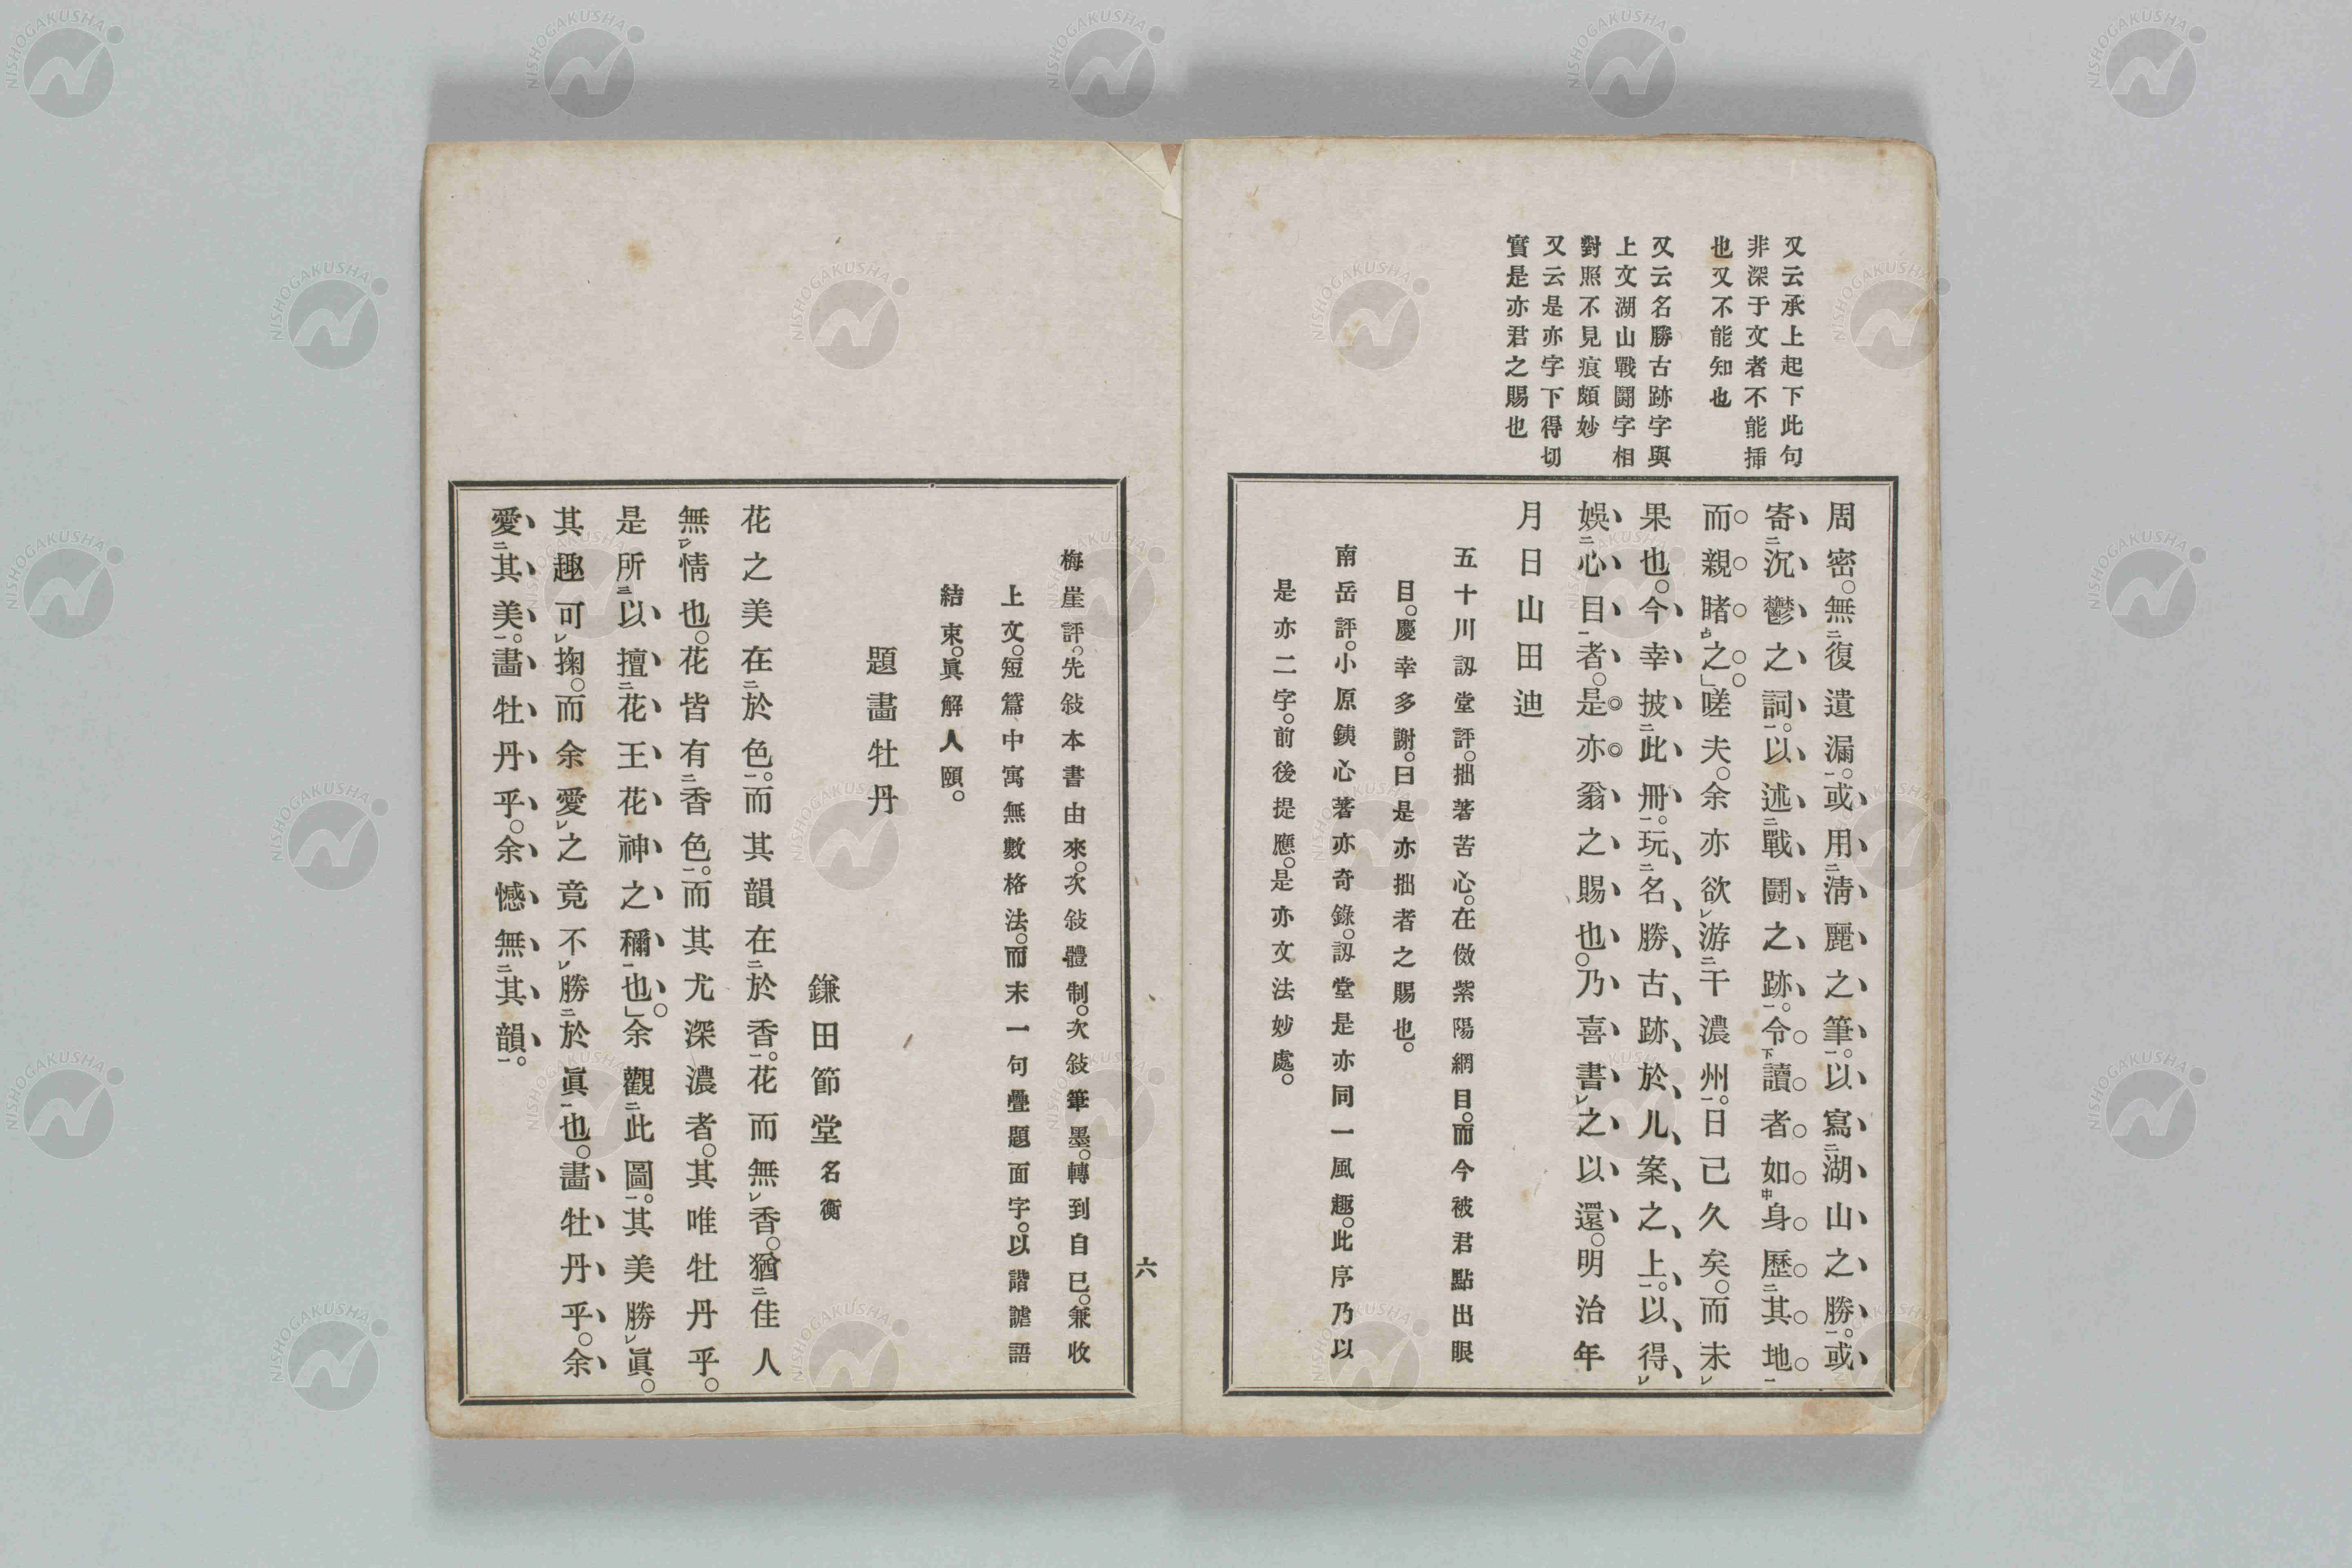 又云承上起下此句
非深于文者不能揷
也又不能知也
又云名勝古跡字與
上文湖山戰鬪字相
對照不見痕頗妙
又云是亦字下得切
實是亦君之賜也
周密。無二復遺漏一。或用二淸麗之筆一。以寫二湖山之勝一。或
寄二沉鬱之詞一。以述二戰鬪之跡一。令下讀者如中身歷二其地一
而親睹上之」嗟夫。余亦欲レ游二于濃州一。日已久矣。而未レ
果也。今幸披二此冊一。玩二名勝古跡於儿案之上一。以得レ
娛二心目一者。是亦翁之賜也。乃喜書レ之以還。明治年
月日山田迪
五十川訒堂評。拙著苦心。在倣紫陽綱目。而今被君點出眼
目。慶幸多謝。曰是亦拙者之賜也。
南岳評。小原鐵心著亦奇錄。訒堂是亦同一風趣。此序乃以
是亦二字。前後提應。是亦文法妙處。
梅崖評。先敍本書由來。次敍體制。次敍筆墨。轉到自已。兼收
上文。短篇中寓無數格法。而末一句疊題面字。以諧謔語
結束。眞解人頤。
題畵牡丹
鎌田節堂名衡
花之美在二於色一。而其韻在二於香一。花而無レ香。猶二佳人
無レ情也。花皆有二香色一。而其尤深濃者。其唯牡丹乎。
是所三以擅二花王花神之稱一也」余觀二此圖一。其美勝レ眞。
其趣可レ掬。而余愛レ之竟不レ勝二於眞一也。畵牡丹乎。余
愛二其美一。畵牡丹乎。余憾無二其韻一。
六
NISHOGAKUSHA